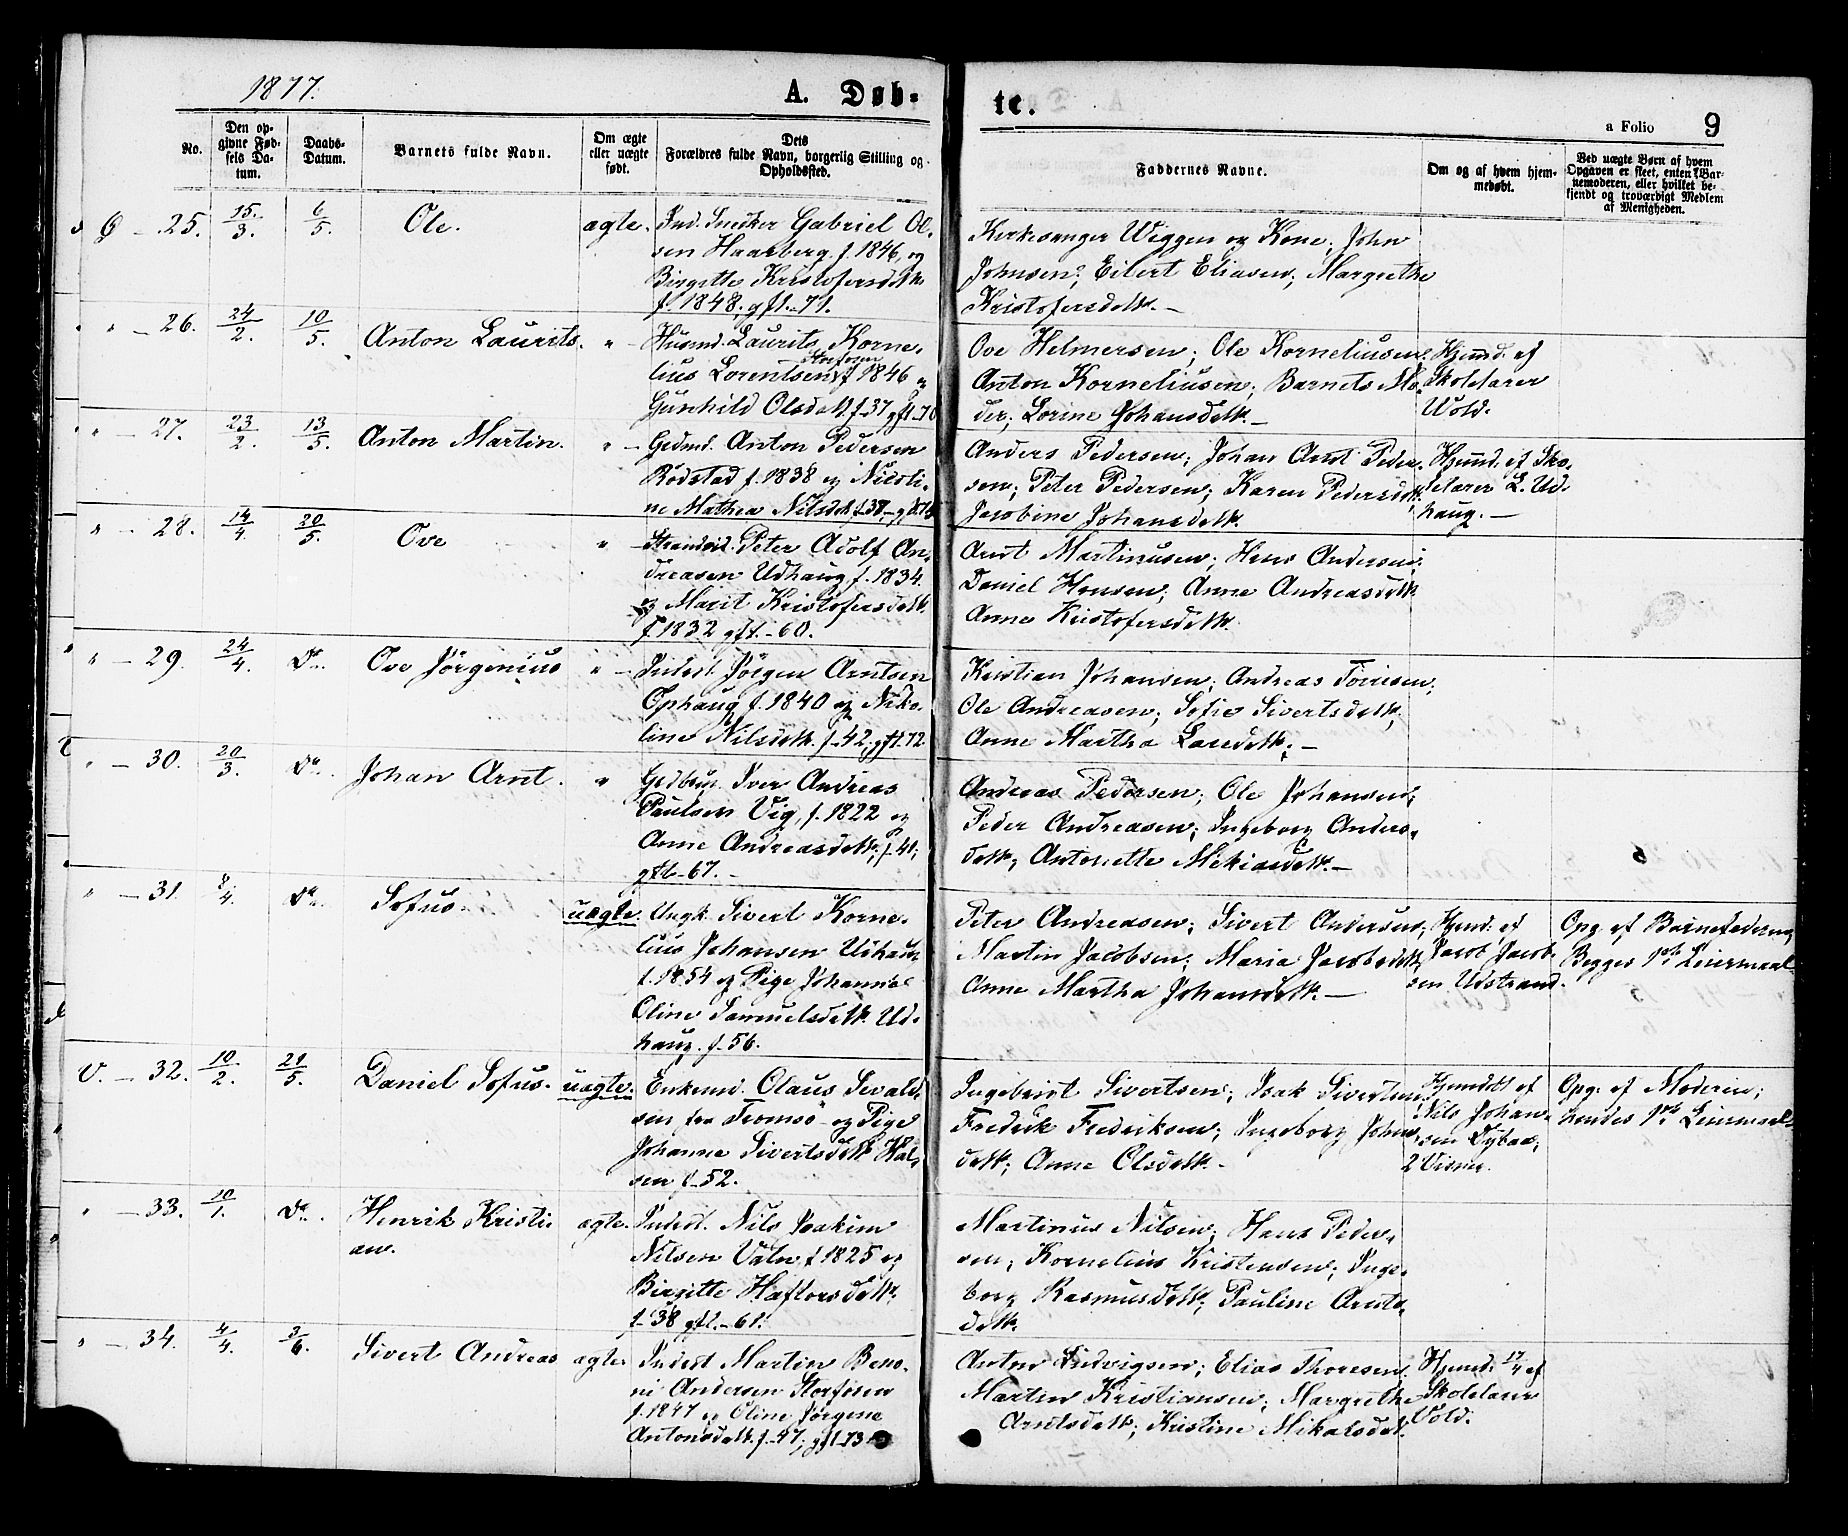 1877.
A. Døb-
te.
a Folio 9
No.
Den op-
givne Fød-
sels Da-
tum.
Daabs-
Datum.
Barnets fulde Navn.
Om ægte
eller uægte
født.
Dets
Forældres fulde Navn, borgerlig Stilling og
Opholdssted.
Faddernes Navne.
Om og af hvem hjem-
medøbt.
Ved uægte Børn af hvem
Opgaven er skeet, enten Bar-
nemoderen, eller hvilket be-
kjendt og troværdigt Medlem
af Menigheden.
Ø - 25. 15/3. 6/5 Ole. ægte.
Ind. Snedker Gabriel Ol-
sen Haarberg f. 1846, og
Birgitte Kristofersdatt.
f. 1848; gft. -71.
Kirkesanger Wiggen og Kone; John
Johnsen; Eilert Eliasen; Margrethe
Kristofersdatt. -
" - 26. 24/2. 10/5. Anton Laurits. "
Husmd. Laurits Korne-
lius Lorentsen Storfosen f. 1846 "
Gunhild Olsdatt. f. 37 gft. 70
Ove Helmersen; Ole Korneliusen;
Anton Korneliusen; Barnets Mo-
der; Lorine Johansdatt. -
Hjmd. af
Skolelærer
Wold.
" - 27. 23/2. 13/5. Anton Martin. "
Gedmd. Anton Pedersen
Rødstad f. 1838 og Nicoli-
ne Mathea Nilsdatt. f. 38 -
Anders Pedersen; Johan Arnt Peder-
sen; Peter Pedersen; Karen Pedersdatt.
Jacobine Johansdatt.
Hjmd. af Sko-
lelærer L. Ud-
haug. -
" - 28. 14/4. 20/5. Ove "
Strandsid. Peter Adolf An-
dreasen Udhaug f. 1834.
og Marit Kristofersdatt.
f. 1832 gft. -60.
Arnt Martinusen; Hans Andersen;
Daniel Hansen; Anne Andreasdatt.
Anne Kristofersdatt.
" - 29. 24/4. Do. Ove Jörgenius "
Inderst Jörgen Arntsen
Ophaug f. 1840 og Niko-
line Nilsdatt. f. 42, gft. 72.
Kristian Johansen; Andreas
Ole Andreasen; Sofie Sivertsdatt.
Anne Martha Larsdatt. -
" - 30. 20/3. Do. Johan Arnt. "
Iver Andreas
Paulsen Vig, f. 1822 og
Anne Andreasdatt. f. 41;
gft. -67. -
Andreas Pedersen; Ole Johansen;
Peder Andreasen; Ingeborg Anders-
datt; Antonette Mekiasdatt. -
" - 31. 8/4. Do. Sofus. uægte.
Ungk. Sivert Korne-
lius Johansen Udhaug
f. 1854 og Pige Johanna
Oline Samuelsdatt. Ud-
haug. f. 56.
Peter Andreasen; Sivert Andersen;
Martin Jacobsen; Maria Jacobsdatt.
Anne Martha Johansdatt. -
Hjmd. af
Jacob Jacob-
sen Udstrand.
Opg. af Barnefaderen;
Begges 1ste Leiermaal.
V. - 32. 10/2. 21/5. Daniel Sofus. uægte.
Enkemd. Olaus Sevald-
sen fra Tromsö - og Pige
Johanne Sivertsdatt. Hal-
sen f. 52.
Ingebrigt Sivertsen; Isak Sivertsen
Fredrik Fredriksen; Ingeborg Johns-
datt; Anne Olsdatt. -
Hjmdöbt af
Nils Johan-
sen Dybaa;
2 Vidner.
Opg. af Moderen;
hendes 1ste Leiermaal.
" - 33. 10/1. Do. Henrik Kristi-
an. ægte.
Inderst. Nils Joakim
Nilsen Valn f. 1825 og
Birgitte Haftorsdatt.
f. 38 gft. -61.
Martinus Nilsen; Hans Peder-
sen; Kornelius Kristensen; Inge-
borg Rasmusdatt; Pauline Arnts-
datt.
" - 34. 4/4. 3/6. Sivert Andreas ægte
Inderst Martin Beno-
ni Andersen Storfosen
f. 1847 og Oline Jörgine
Antonsdatt. f. 47; gft. 73
Anton Ludvigsen; Elias Thoresen
Martin Kristiansen; Margrethe
Arntsdatt; Kristine Mikalsdat.
Hjmd. 17/4 af
Skolelærer
Vold.